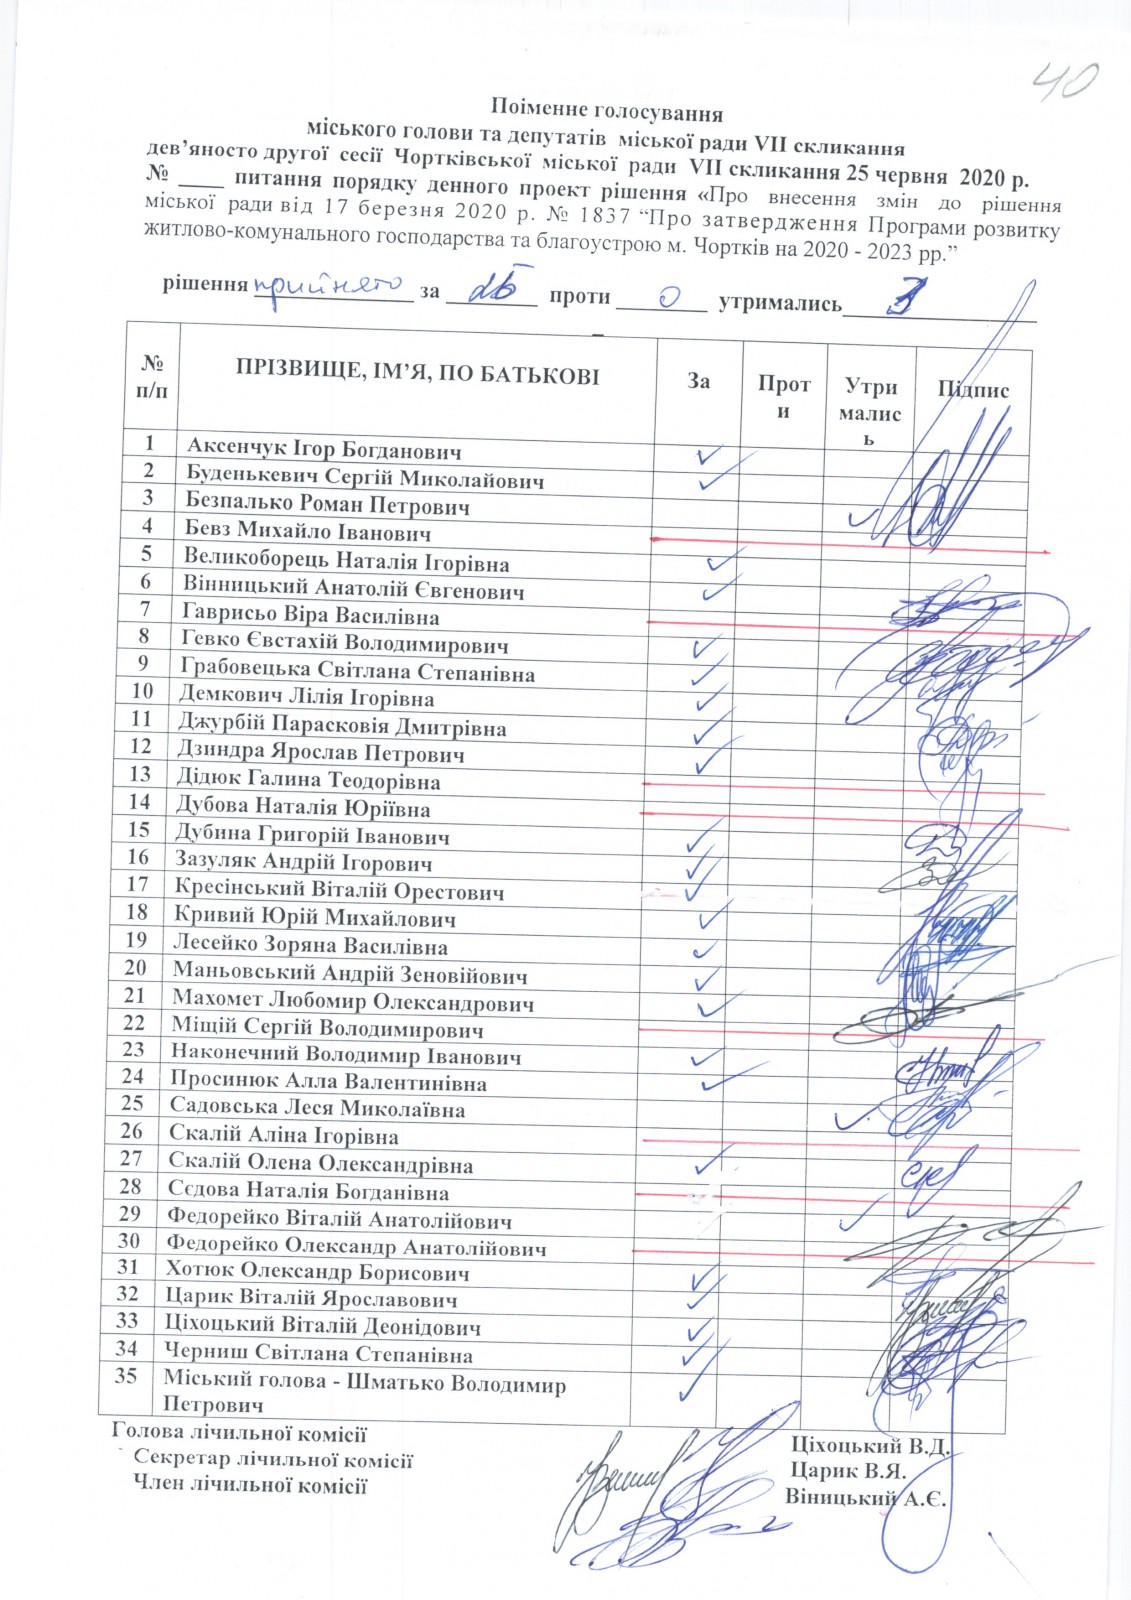 40
Поіменне голосування
міського голови та депутатів міської ради VII скликання
дев’яносто другої сесії Чортківської міської ради VII скликання 25 червня 2020 р.
№ ____ питання порядку денного проект рішення «Про внесення змін до рішення
міської ради від 17 березня 2020 р. № 1837 “Про затвердження Програми розвитку
житлово-комунального господарства та благоустрою м. Чортків на 2020 - 2023 рр.”
рішення прийнято за 25 проти 0 утримались 3
№ п/п ПРІЗВИЩЕ, ІМ’Я, ПО БАТЬКОВІ За Проти Утримались Підпис
1 Аксенчук Ігор Богданович ✓
2 Буденькевич Сергій Миколайович ✓
3 Безпалько Роман Петрович ✓
4 Бевз Михайло Іванович
5 Великоборець Наталія Ігорівна ✓
6 Вінницький Анатолій Євгенович ✓
7 Гаврисьо Віра Василівна
8 Гевко Євстахій Володимирович ✓
9 Грабовецька Світлана Степанівна ✓
10 Демкович Лілія Ігорівна ✓
11 Джурбій Парасковія Дмитрівна ✓
12 Дзиндра Ярослав Петрович ✓
13 Дідюк Галина Теодорівна
14 Дубова Наталія Юріївна
15 Дубина Григорій Іванович ✓
16 Зазуляк Андрій Ігорович ✓
17 Кресінський Віталій Орестович ✓
18 Кривий Юрій Михайлович ✓
19 Лесейко Зоряна Василівна ✓
20 Маньовський Андрій Зеновійович ✓
21 Махомет Любомир Олександрович ✓
22 Міщій Сергій Володимирович
23 Наконечний Володимир Іванович ✓
24 Просинюк Алла Валентинівна ✓
25 Садовська Леся Миколаївна ✓
26 Скалій Аліна Ігорівна
27 Скалій Олена Олександрівна ✓
28 Сєдова Наталія Богданівна
29 Федорейко Віталій Анатолійович ✓
30 Федорейко Олександр Анатолійович
31 Хотюк Олександр Борисович ✓
32 Царик Віталій Ярославович ✓
33 Ціхоцький Віталій Деонідович ✓
34 Черниш Світлана Степанівна ✓
35 Міський голова - Шматько Володимир
Петрович ✓
Голова лічильної комісії Ціхоцький В.Д.
Секретар лічильної комісії Царик В.Я.
Член лічильної комісії Віницький А.Є.